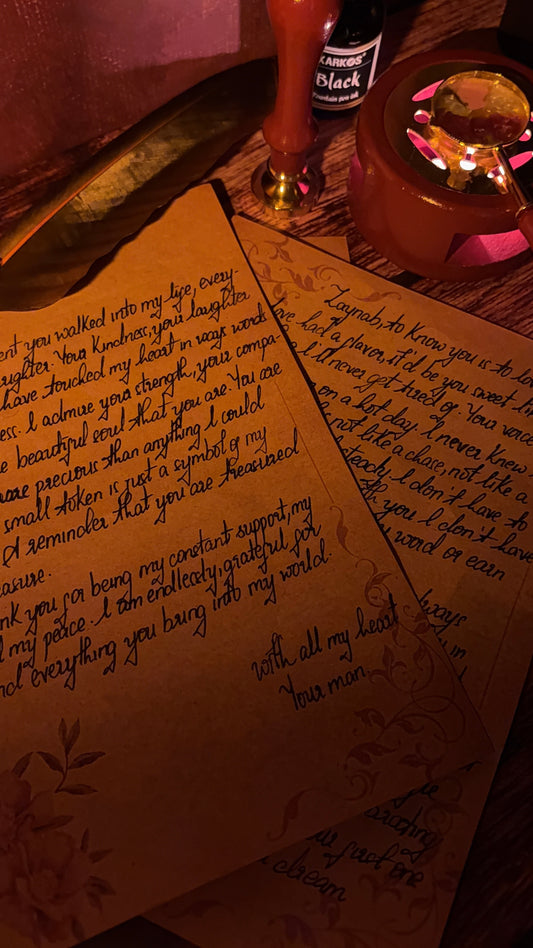 KARKOS
Black
Fountain pen ink
you walked into my life, every-
Your kindness, your laughter
have touched my heart in ways words
I admire your strength, your compa-
beautiful soul that you are. You are
more precious than anything I could
small token is just a symbol of my
A reminder that you are treasured
you for being my constant support, my
my peace. I am endlessly, grateful for
everything you bring into my world.
with all my heart
Your man.
Zaynab, to know you is to
had a flavor, it'd be you sweet
I'll never get tired of. Your voice
on a hot day. I never knew
not like a chase, not like a
steady. I don't have to
you I don't have
word or earn
in
first one
dream